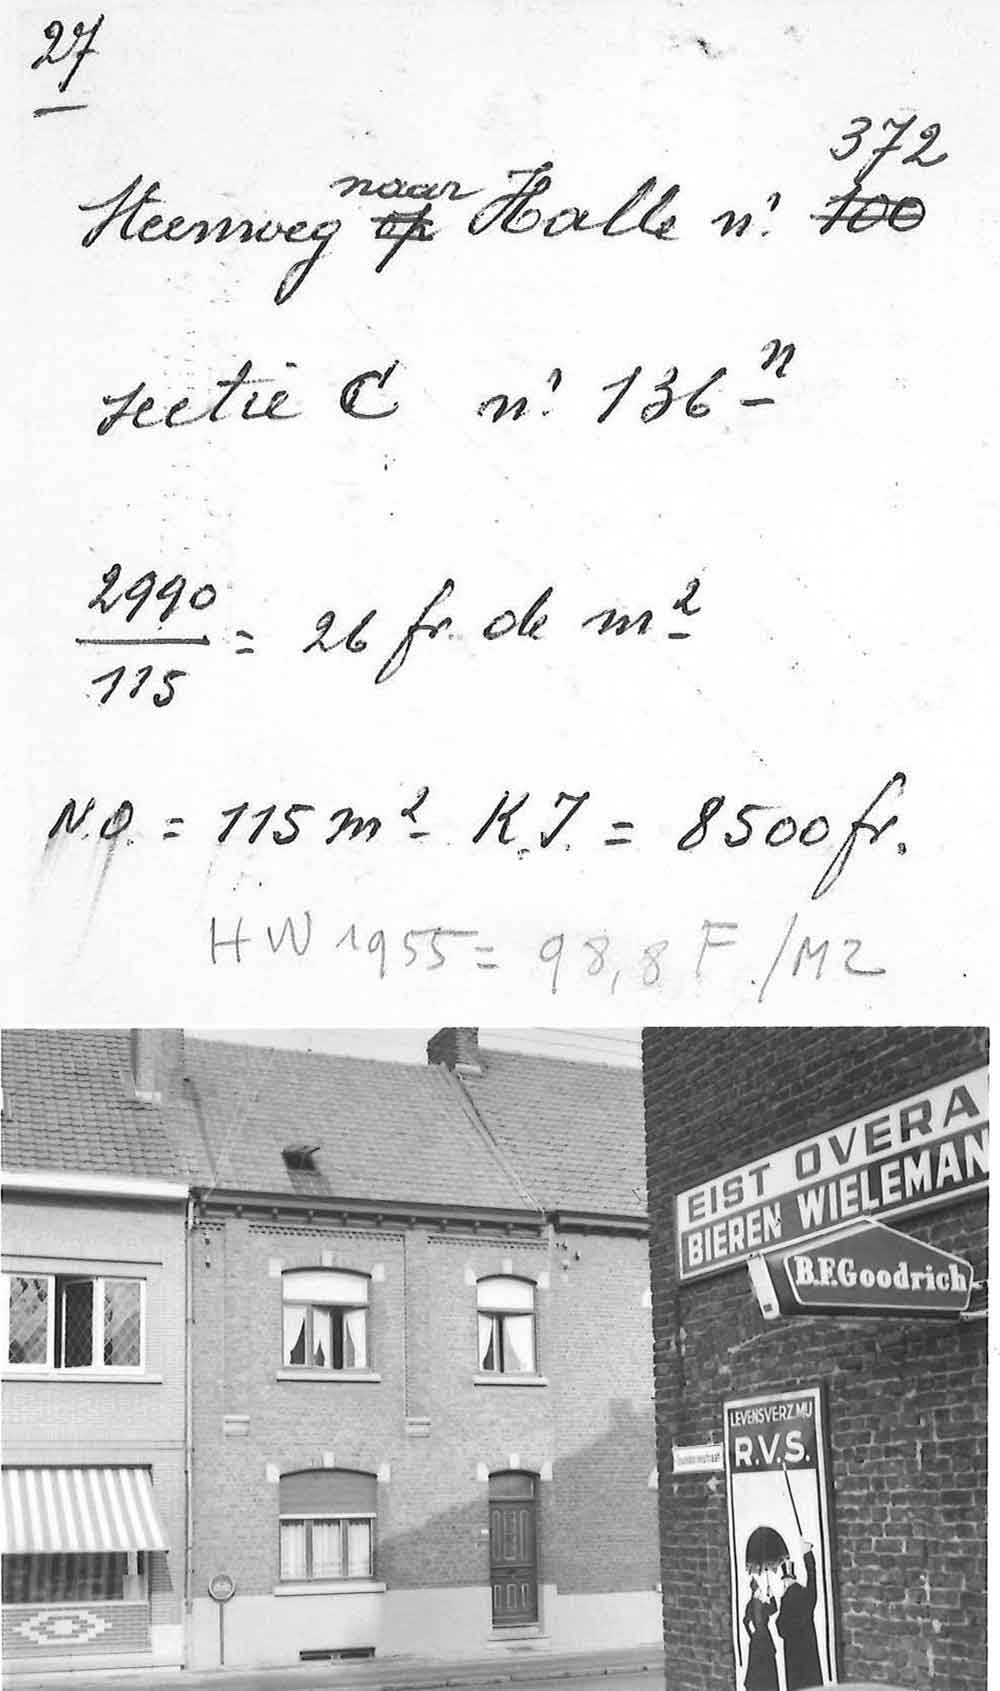 27
372
Steenweg op naar Halle n! 100
sectie C n! 136 n
2990
115
= 26 fr. de m2
N.O. = 115 m2 K.I. = 8500 fr.
HW 1955 = 98,8 F/M2
EIST OVERA
BIEREN WIELEMAN
B.F.Goodrich
LEVENSVERZ.MIJ
R.V.S.